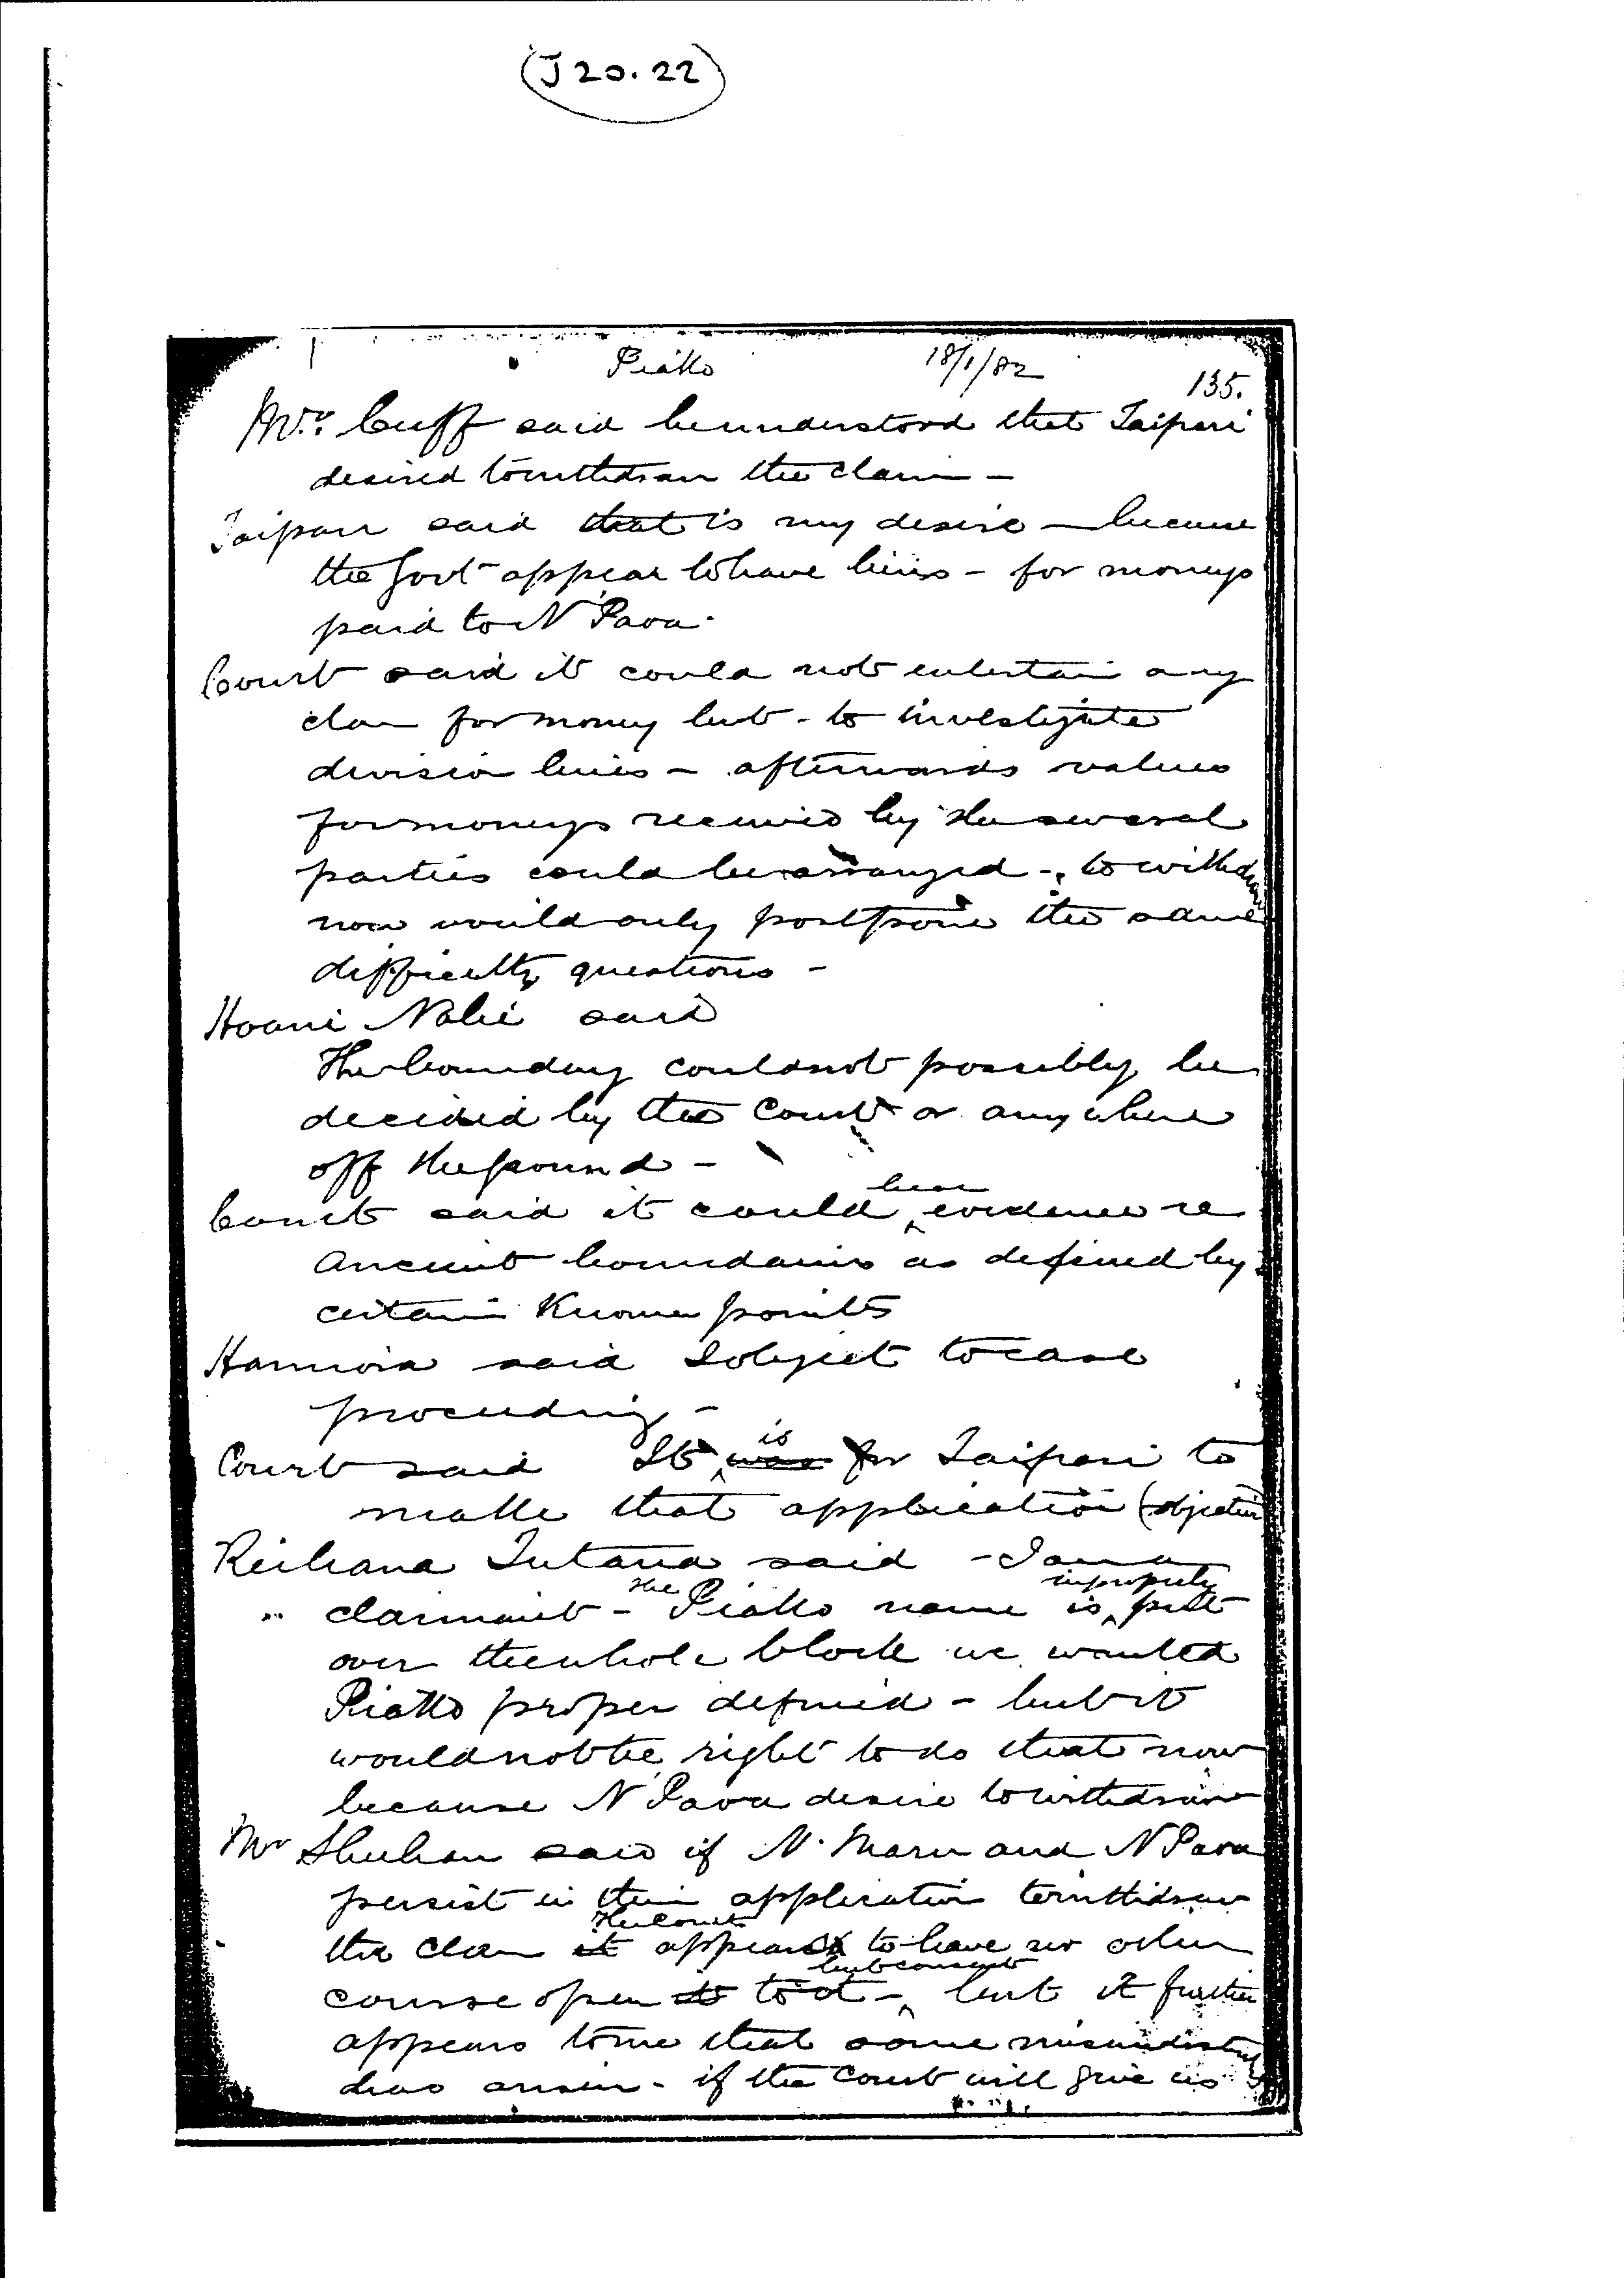 (J 20.22)
Piako 18/1/82 135.
Mr. Cuff said he understood that Taipari
desired to withdraw the claim -
Taipari said that is my desire - because
the Govt appear to have liens - for moneys
paid to N Paoa.
Court said it could not entertain any
claim for money but - to investigate
division lines - afterwards values
for moneys received by the several
parties could be arranged - to withdraw
now would only postpone the same
difficulty questions -
Hoani Nahi said
The boundary could not possibly be
decided by the Court or any where
off the ground -
Court said it could hear evidence re
Ancient boundaries as defined by
certain Known points
Haruiora said I object to case
proceeding -
Court said It is was for Taipari to
make that application (objection
Reihana Tutana said - I am a
claimant - the Piako name is improperly put
over the whole block we wanted
Piako proper defined - but it
would not be right to do that now
because N Paoa desire to withdraw
Mr Sheehan said if N. Maru and N Paoa
persist in their application to withdraw
the claim it The Court appears to have no other
course open to it - but consent but it further
appears to me that some misunderstand
has arisen - if the Court will give us